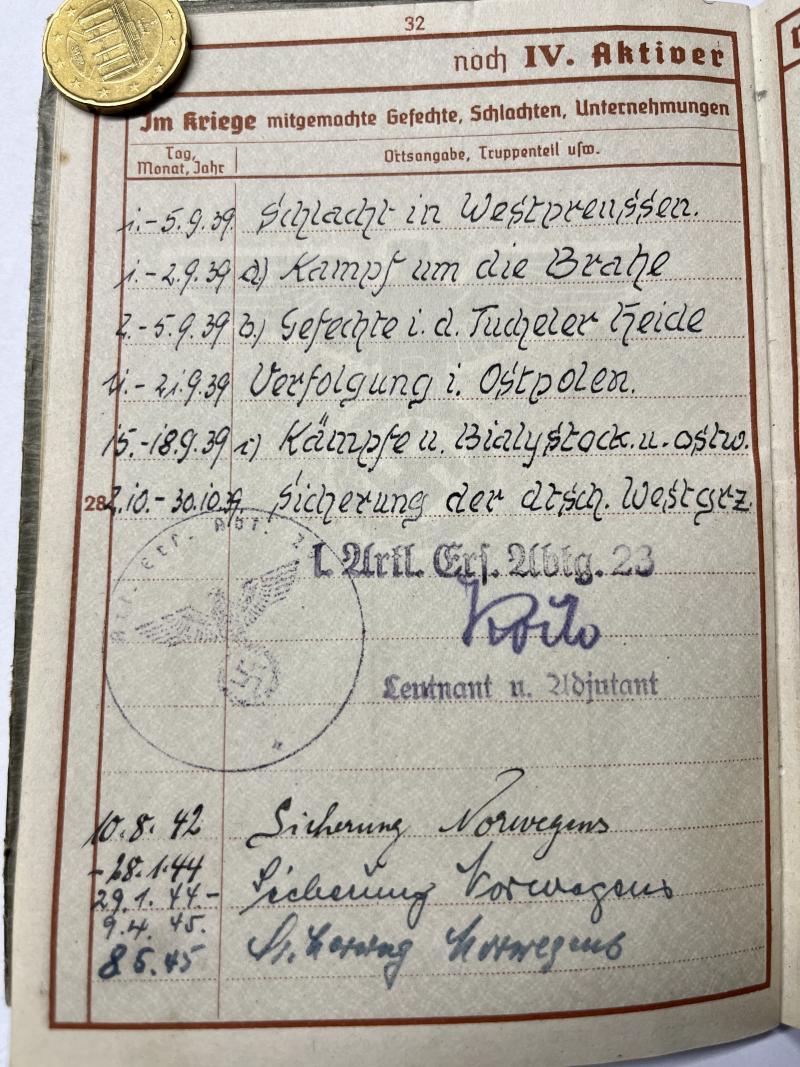 32
noch IV. Aktiver
Im Kriege mitgemachte Gefechte, Schlachten, Unternehmungen
Tag, Monat, Jahr | Ortsangabe, Truppenteil usw.
1.-5.9.39 Schlacht in Westpreussen.
1.-2.9.39 a) Kampf um die Brahe
2.-5.9.39 b) Gefechte i. d. Tucheler Heide
11.-21.9.39 Verfolgung i. Ostpolen.
15.-18.9.39 Kämpfe u. Bialystock. u. ostw.
28
2.10.-30.10.39. Sicherung der dtsch. Westgrz.
l. Artl. Ers. Abtlg. 23
Leutnant u. Adjutant
10.8.42 Sicherung Norwegens
-28.1.44
29.1.44.- Sicherung Norwegens
9.4.45.
8 5.45 Sicherung Norwegens